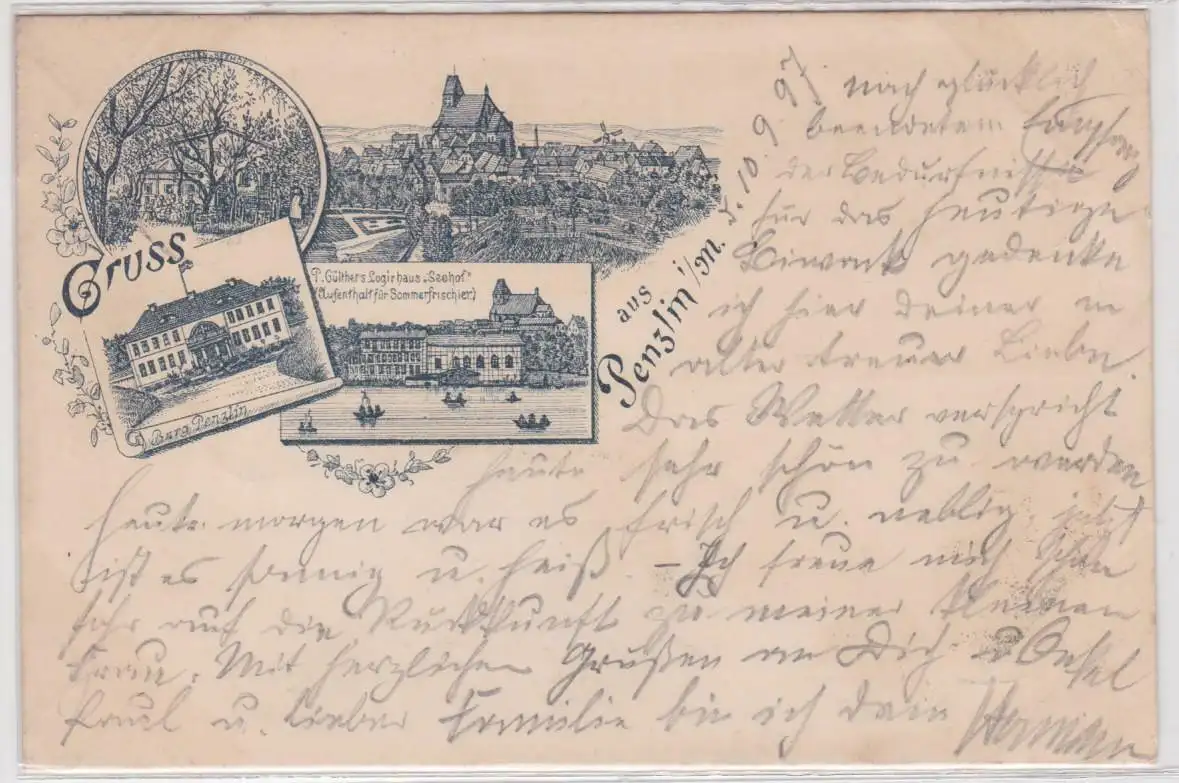 Gruss
aus
Penzlin i/M.
P. Gülther's Logirhaus „Seehof"
(Aufenthalt für Sommerfrischler)
Burg Penzlin
d. 10 9 97
nach glücklich
beendetem Empfang
der Bedürfnisse
für das heutige
Biwak gedenke
ich hier deiner in
alter treuer Liebe.
Das Wetter verspricht
heute sehr schön zu werden
heute morgen war es frisch u. neblig, jetzt
ist es sonnig u. heiß. - Ich freue mich schon
sehr auf die Rückkunft zu meiner kleinen
Frau. Mit herzlichen Grüßen an Dich u Onkel
Paul u. lieber Familie bin ich dein Hermann